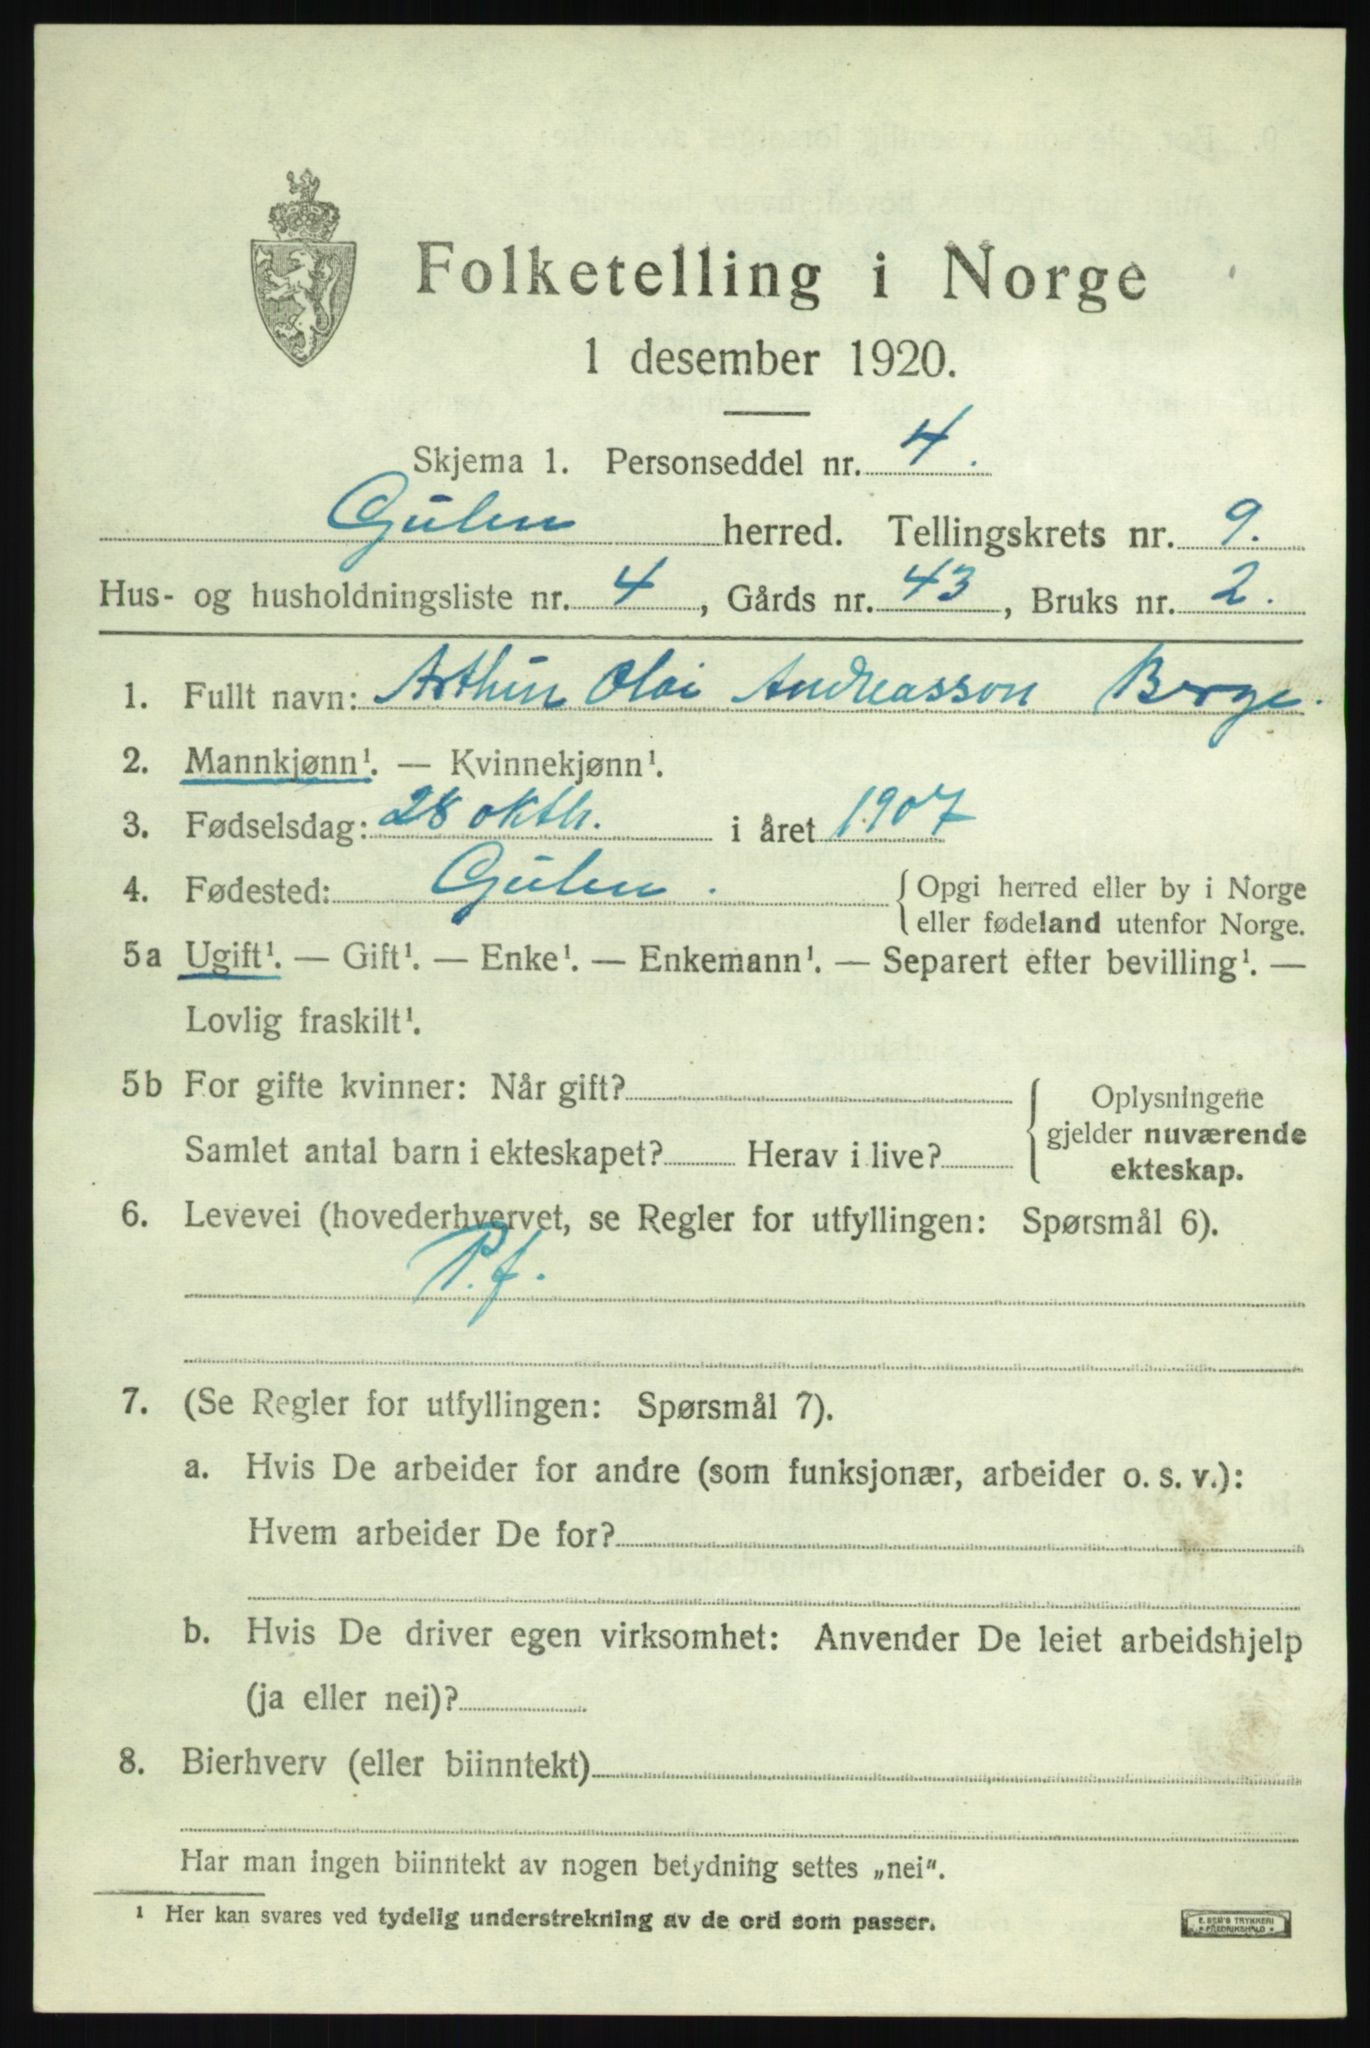 Folketelling i Norge
1 desember 1920.
Skjema 1. Personseddel nr. 4.
Gulen herred. Tellingskrets nr. 9.
Hus- og husholdningsliste nr. 4, Gårds nr. 43, Bruks nr. 2.
1. Fullt navn: Arthur Olai Andreasson Berge.
2. Mannkjønn¹. — Kvinnekjønn¹.
3. Fødselsdag: 28 oktb. i året 1907
4. Fødested: Gulen. Opgi herred eller by i Norge
eller fødeland utenfor Norge.
5a Ugift¹. — Gift¹. — Enke¹. — Enkemann¹. — Separert efter bevilling¹. —
Lovlig fraskilt¹.
5b For gifte kvinner: Når gift? Oplysningene
gjelder nuværende
Samlet antal barn i ekteskapet? Herav i live?
ekteskap.
6. Levevei (hovederhvervet, se Regler for utfyllingen: Spørsmål 6).
P. f.
7. (Se Regler for utfyllingen: Spørsmål 7).
a. Hvis De arbeider for andre (som funksjonær, arbeider o. s. v.):
Hvem arbeider De for?
b. Hvis De driver egen virksomhet: Anvender De leiet arbeidshjelp
(ja eller nei)?
8. Bierhverv (eller biinntekt)
Har man ingen biinntekt av nogen betydning settes „nei“.
¹ Her kan svares ved tydelig understrekning av de ord som passer.
E. SEM'S TRYKKERI
FREDRIKSHALD